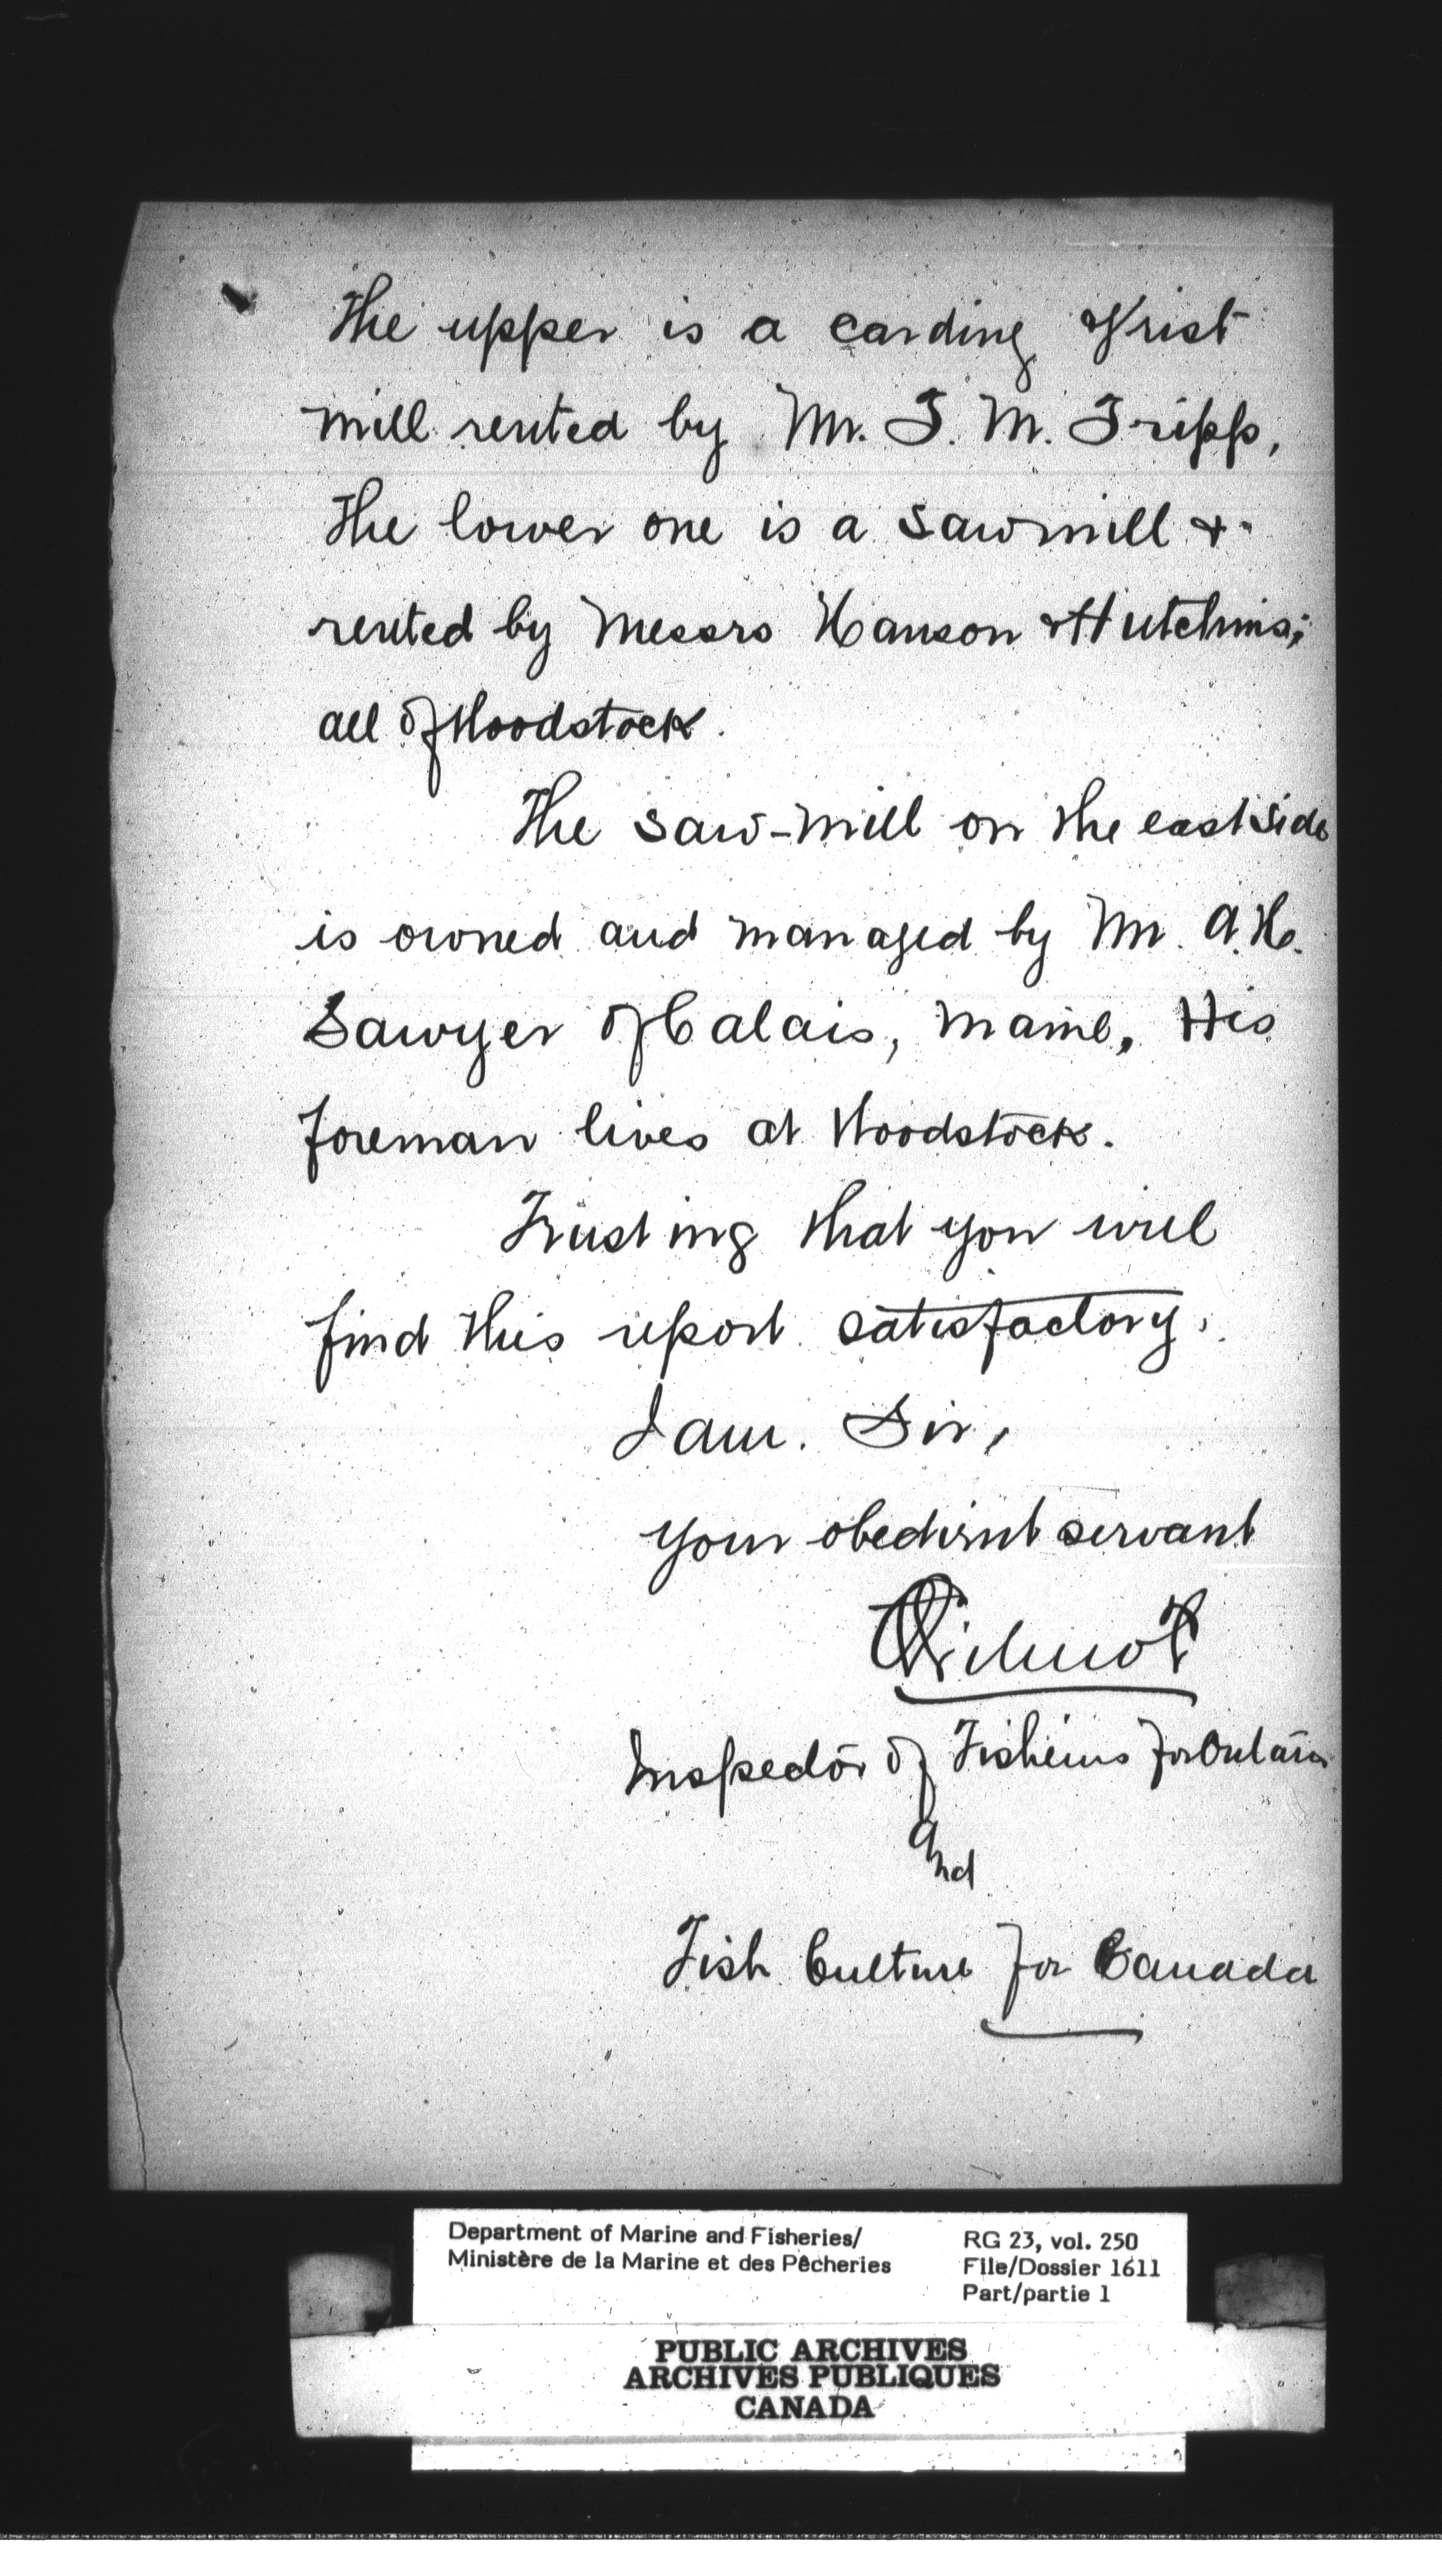 The upper is a carding & Grist
mill rented by Mr. T. M. Tripp,
The lower one is a sawmill &
rented by Messrs Hanson & Hutchins;
all of Woodstock.
The saw-mill on the east side
is owned and managed by Mr. A. H.
Sawyer of Calais, Maine, His
foreman lives at Woodstock.
Trusting that you will
find this report satisfactory,
I am. Sir,
your obedient servant
Wilmot
Inspector of Fisheries for Ontario
And
Fish Culture for Canada
Department of Marine and Fisheries/
Ministère de la Marine et des Pêcheries
RG 23, vol. 250
File/Dossier 1611
Part/partie 1
PUBLIC ARCHIVES
ARCHIVES PUBLIQUES
CANADA